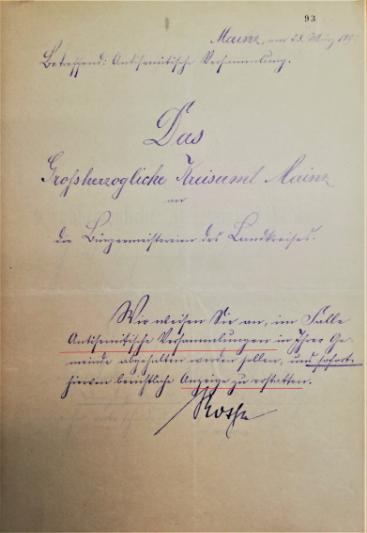 93
Mainz, am 23. März 189
Betreffend: Antisemitische Versammlung.
Das
Großherzogliche Kreisamt Mainz
an
die Bürgermeistereien des Landkreises.
Wir weisen Sie an, im Falle
Antisemitische Versammlungen in Ihrer Ge-
meinde abgehalten werden sollen, uns sofort
hiervon berichtliche Anzeige zu erstatten.